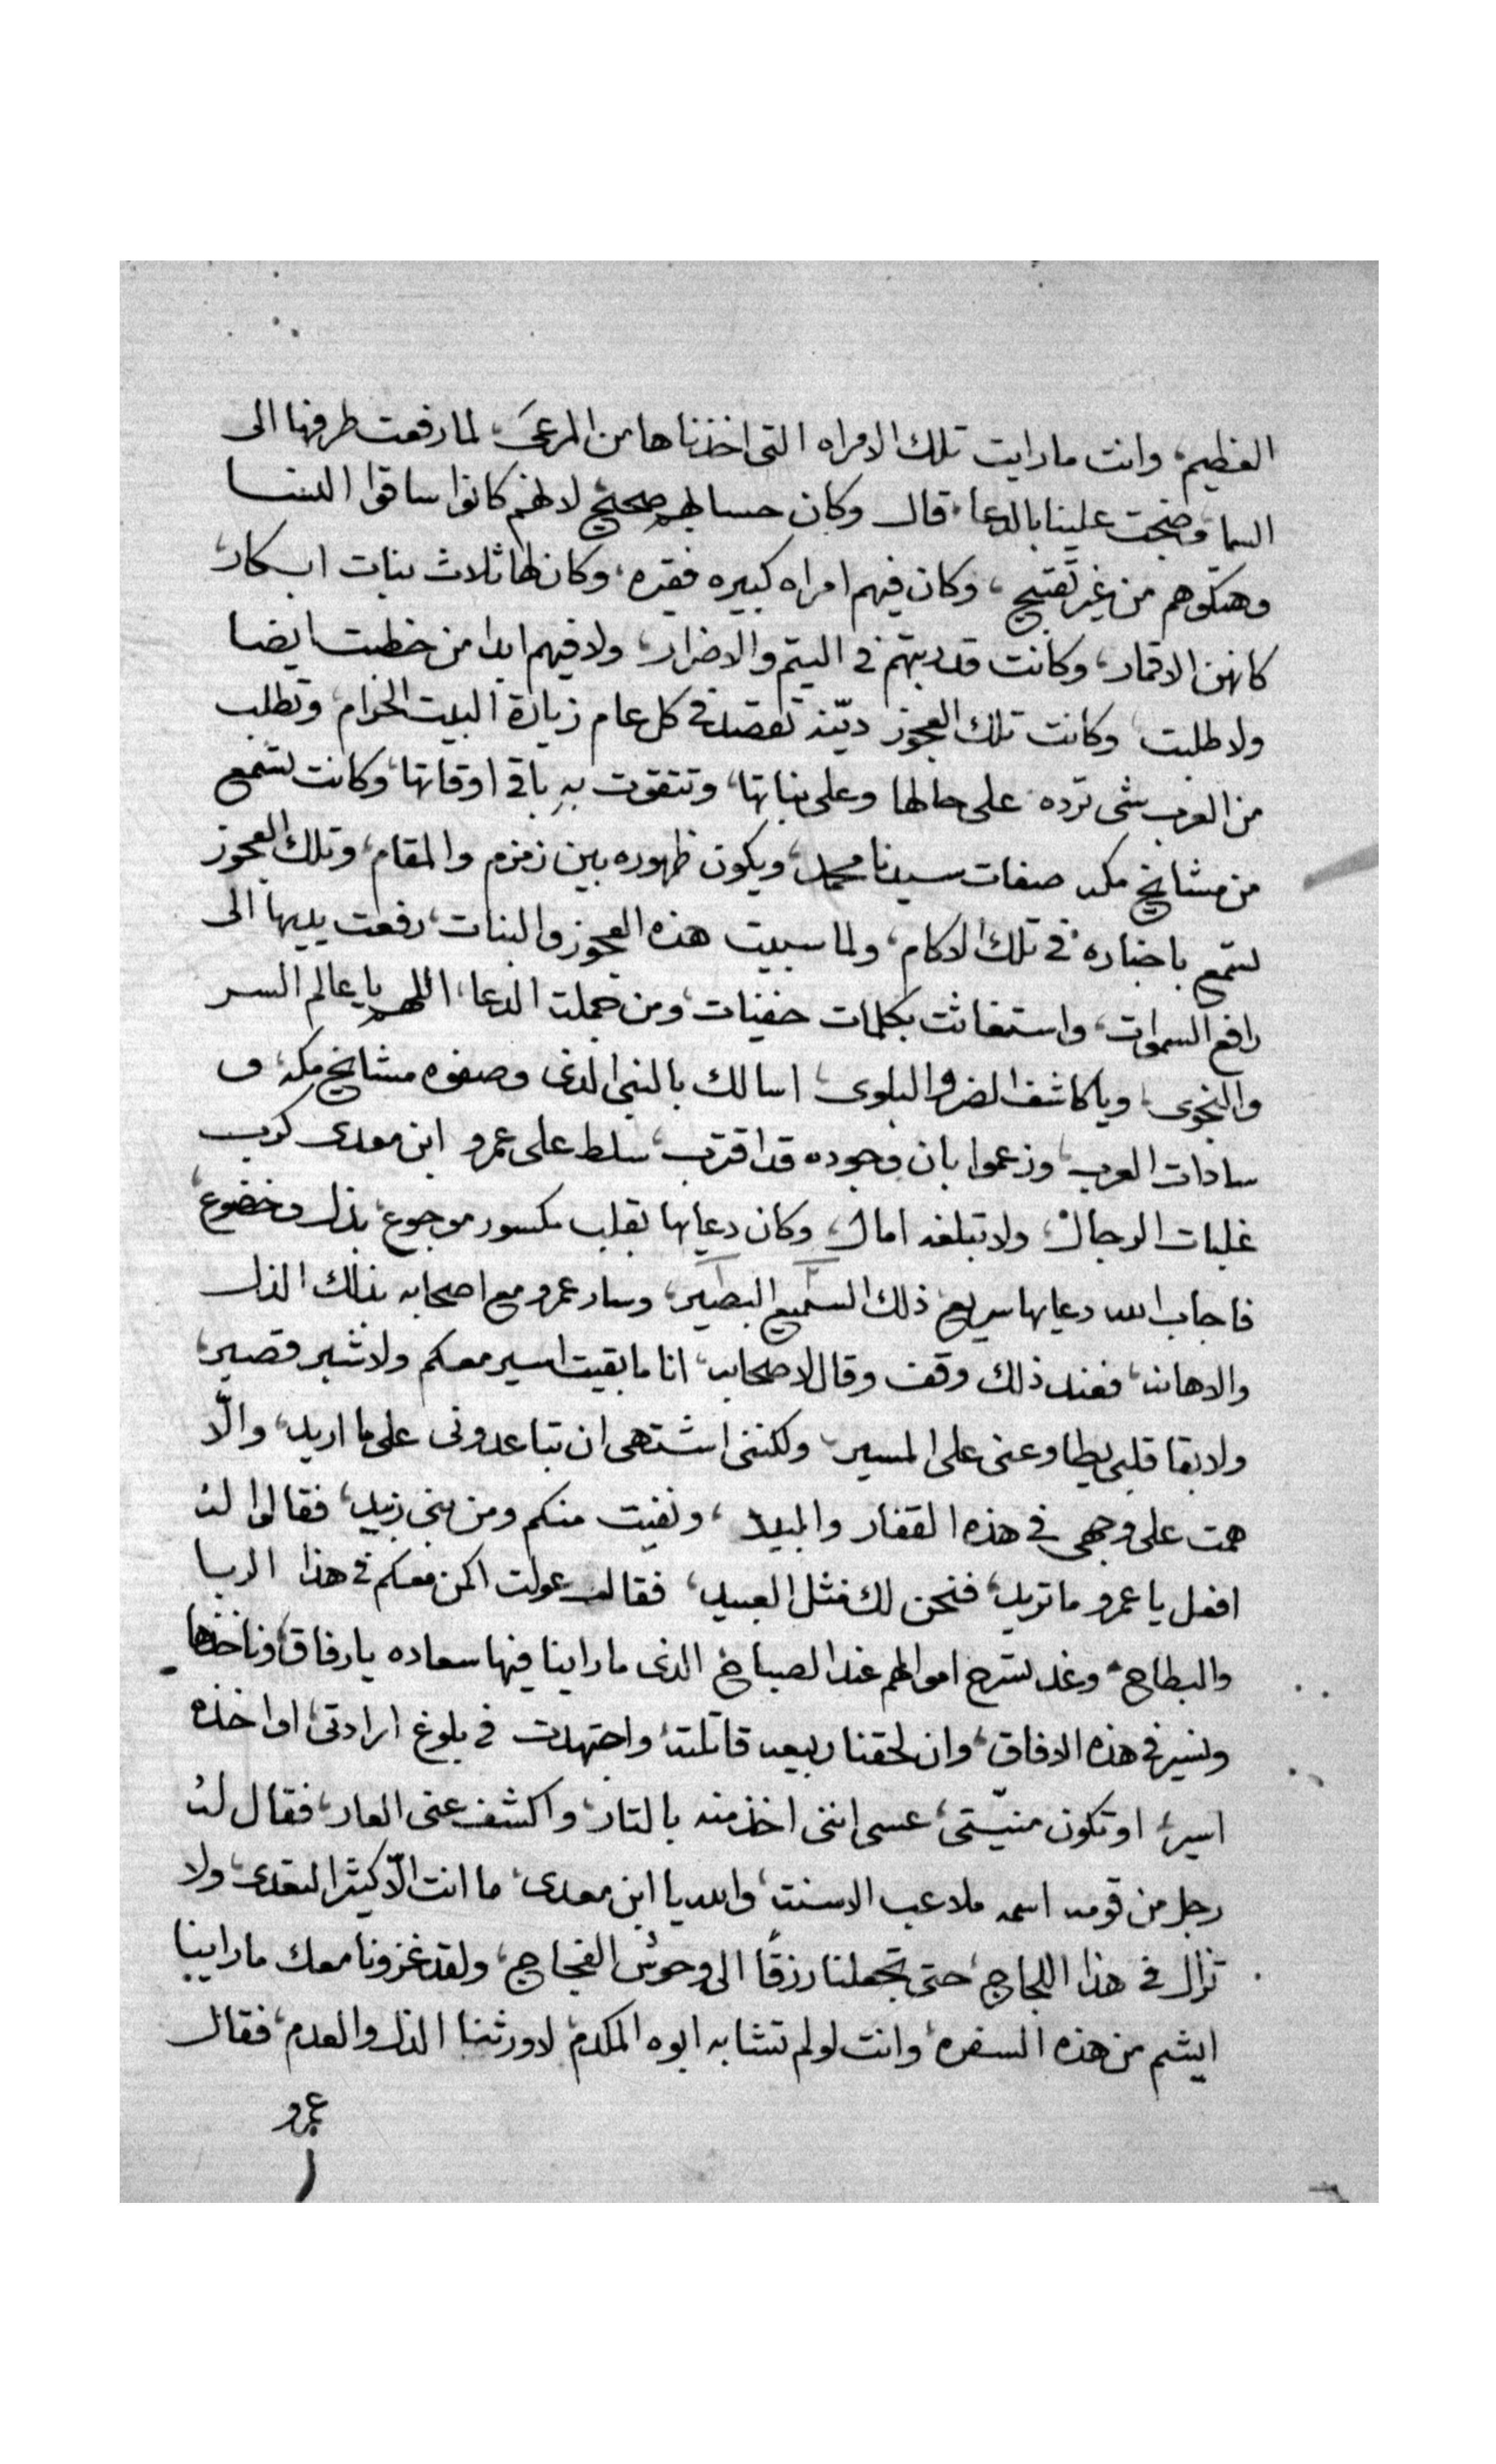 العظيم، وانت ما رايت تلك الامراه التى اخذناها من المرعىَ، لما رفعت طرفها الى
السما، وضجت علينا بالدعا، قال وكان حسابهم صحيح لانهم كانوا ساقوا النسا
وهتكوهم من غير تقبيح، وكان فيهم امراه كبيره فقيره، وكان لها ثلاث بنات ابكار،
كانهن الاقمار، وكانت قد ربتهم فى اليتم والاضرار، ولا فيهم ابدا من خطبت ايضا
ولا طلبت، وكانت تلك العجوز ديّنه تقصد فى كل عام زيارة البيت الحرام، وتطلب
من العرب شى ترده على حالها وعلى بناتها، وتتقوت بهِ باقى اوقاتها، وكانت تسمع
من مشايخ مكه صفات سيدنا محمد، ويكون ظهوره بين زمزم والمقام، وتلك العجوز
تسمع باخباره فى تلك الاكام، ولما سبيت هذه العجوز والبنات، رفعت يديها الى
رافع السموات، واستغاثت بكلمات خفيات، ومن جملت الدعا، اللهم يا عالم السر
والنجوى، ويا كاشف الضر والبلوى، اسالك بالنبى الذى وصفوه مشايخ مكه، و
سادات العرب، وزعموا بان وجوده قد اقترب، سلط على عمرو ابن معدى كرب
غلبات الرجال، ولا تبلغه امال، وكان دعايها بقلب مكسور موجوع، بذل وخضوع،
فاجاب الله دعايها سريع ذلك السميع البصير، وسار عمرو مع اصحابه بذلك الذل
والاهانه، فعند ذلك وقف وقال لاصحابه، انا ما بقيت اسير معكم ولا شبر قصير،
ولا بقا قلبى يطاوعنى على المسير، ولكننى اشتهى ان تباعدونى على ما اريد، والّا
همت على وجهى فى هذه القفار والبيد، ونفيت منكم ومن بنى زبيد، فقالوا لهُ
افعل يا عمرو ما تريد، فنحن لك مثل العبيد، فقال عولت اكمن معكم فى هذا الربا
والبطاح، وغد تسرح اموالهم عند الصباح، الذى ما راينا فيها سعاده يا رفاق، وناخذها
ونسير فى هذه الافاق، وان لحقنا ربيعه قاتلته، واجتهدت فى بلوغ ارادتى، او اخذه
اسير، او تكون منيّتى، عسى اننى اخذ منه بالتار، واكشف عنى العار، فقال لهُ
رجل من قومه اسمه ملاعب الاسنه، والله يا ابن معدى، ما انت الّا كثير التعدى، ولا
تزال فى هذا اللجاج، حتى تجعلنا رزقًا الى وحوش الفجاج، ولقد غزونا معك ما راينا
ايشم من هذه السفره، وانت لو لم تتشابه ابوه المكدم، لاورثنا الذل والعدم، فقال
عمرو